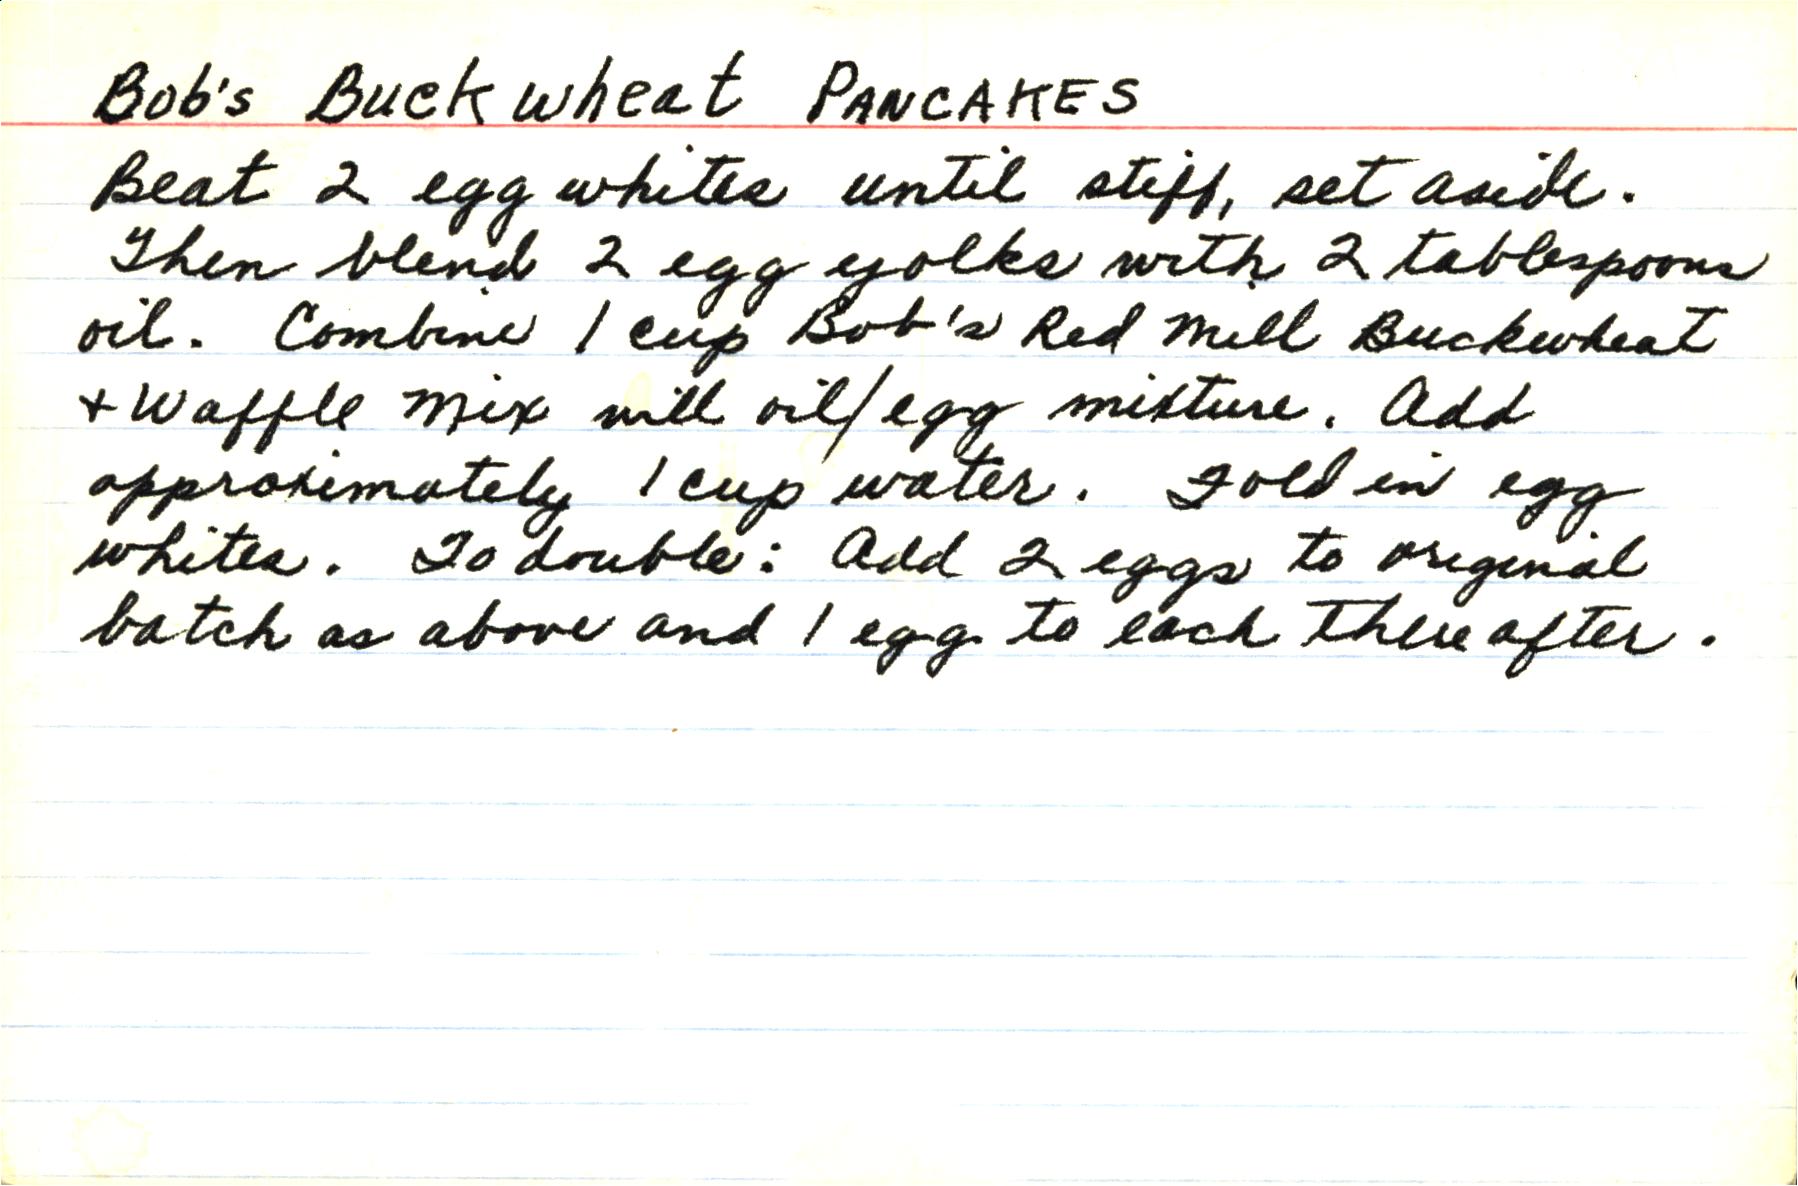 Bob's Buckwheat PANCAKES
Beat 2 egg whites until stiff, set aside.
Then blend 2 egg yolks with 2 tablespoons
oil. Combine 1 cup Bob's Red Mill Buckwheat
+ Waffle Mix will oil/egg mixture. Add
approximately 1 cup water. Fold in egg
whites. To double: Add 2 eggs to original
batch as above and 1 egg to each thereafter.